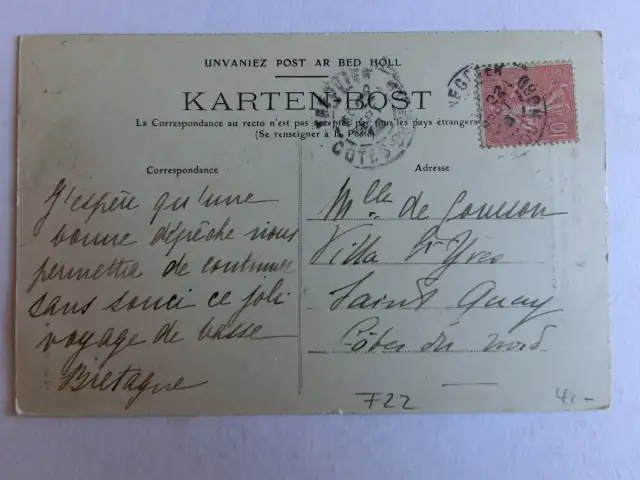 UNVANIEZ POST AR BED HOLL
KARTEN-POST
La Correspondance au recto n'est pas acceptée par tous les pays étrangers
(Se renseigner à la Poste)
Correspondance
Adresse
J'espère qu'une
bonne dépêche nous
permettra de continuer
sans souci ce joli
voyage de basse
Bretagne
Mlle de Gousson
Villa St Yves
Saint Quay
Côtes du Nord
COTES
10
722
4,-